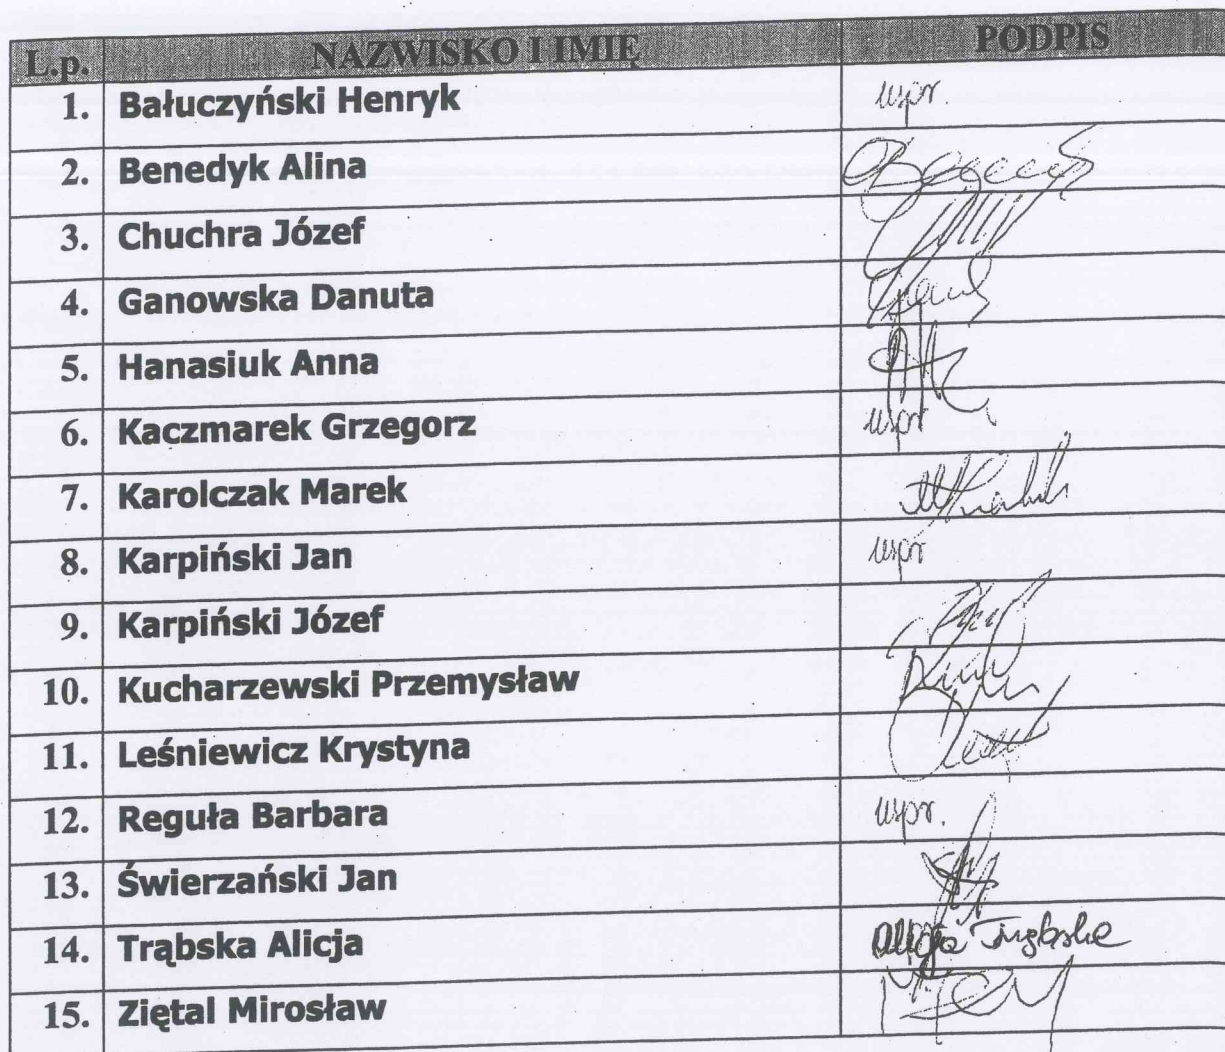 L.p. NAZWISKO I IMIĘ PODPIS
1. Bałuczyński Henryk uspr
2. Benedyk Alina
3. Chuchra Józef
4. Ganowska Danuta
5. Hanasiuk Anna
6. Kaczmarek Grzegorz uspr
7. Karolczak Marek
8. Karpiński Jan uspr
9. Karpiński Józef
10. Kucharzewski Przemysław
11. Leśniewicz Krystyna
12. Reguła Barbara uspr.
13. Świerzański Jan
14. Trąbska Alicja Alicja Trąbska
15. Ziętal Mirosław